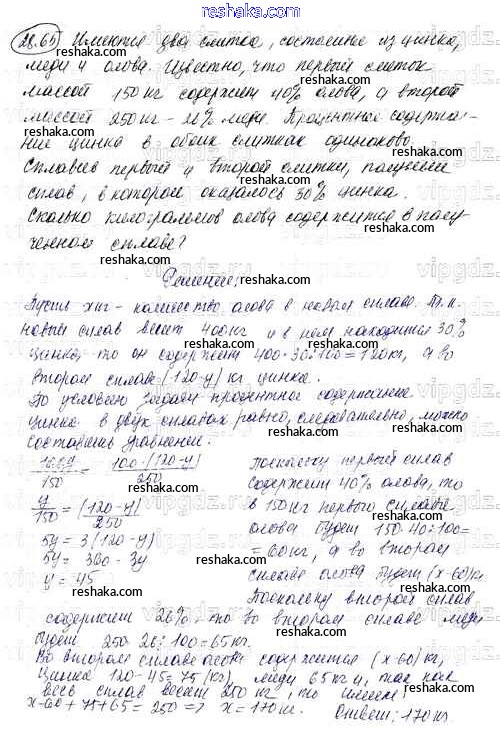 28.65 Имеются два слитка, состоящие из цинка,
меди и олова. Известно, что первый слиток
массой 150 кг содержит 40% олова, а второй
массой 250 кг - 26% меди. Процентное содержа-
ние цинка в обоих слитках одинаково.
Сплавив первый и второй слитки, получили
сплав, в котором оказалось 30% цинка.
Сколько килограммов олова содержится в полу-
ченном сплаве?
Решение:
Пусть x кг - количество олова в новом сплаве. Т.к.
новый сплав весит 400 кг и в нем находится 30%
цинка, то он содержит 400·30:100=120 кг, а во
втором сплаве (120-y) кг цинка.
По условию задачи процентное содержание
цинка в двух сплавах равно, следовательно, можно
составить уравнение.
100y/150 = 100·(120-y)/250
y/150 = (120-y)/250
5y = 3(120-y)
5y = 360-3y
y = 45
Поскольку первый сплав
содержит 40% олова, то
в 150 кг первого сплава
олова будет 150·40:100=
=60 кг, а во втором
сплаве олова будет (x-60) кг.
Поскольку второй сплав
содержит 26%, то во втором сплаве меди
будет 250·26:100=65 кг.
Во втором сплаве олова содержится (x-60) кг,
цинка 120-45=75 (кг), меди 65 кг и, так как
весь сплав весит 250 кг, то имеем
x-60+75+65=250 => x=170 кг. Ответ: 170 кг.
reshaka.com
vipgdz.com